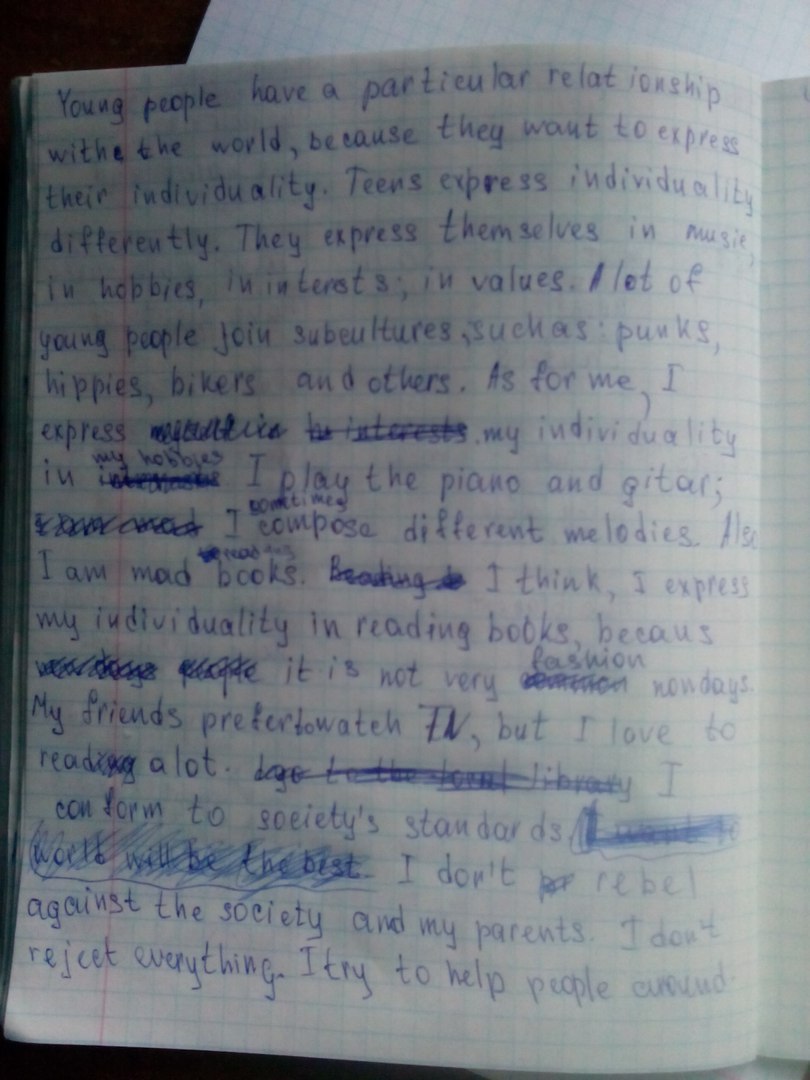 Young people have a particular relationship
withe the world, because they want to express
their individuality. Teens express individuality
differently. They express themselves in music,
in hobbies, in interests, in values. A lot of
young people join subcultures, such as: punks,
hippies, bikers and others. As for me, I
express in interests my individuality
in my hobbies. I play the piano and gitar;
I sometimes compose different melodies. Also
I am mad reading books. Reading I think, I express
my individuality in reading books, becaus
people it is not very fashion nondays.
My friends prefer to watch TV, but I love to
read a lot. I go to the local library I
conform to society's standards. I want to
world will be the best. I don't rebel
against the society and my parents. I don't
reject everything. I try to help people around